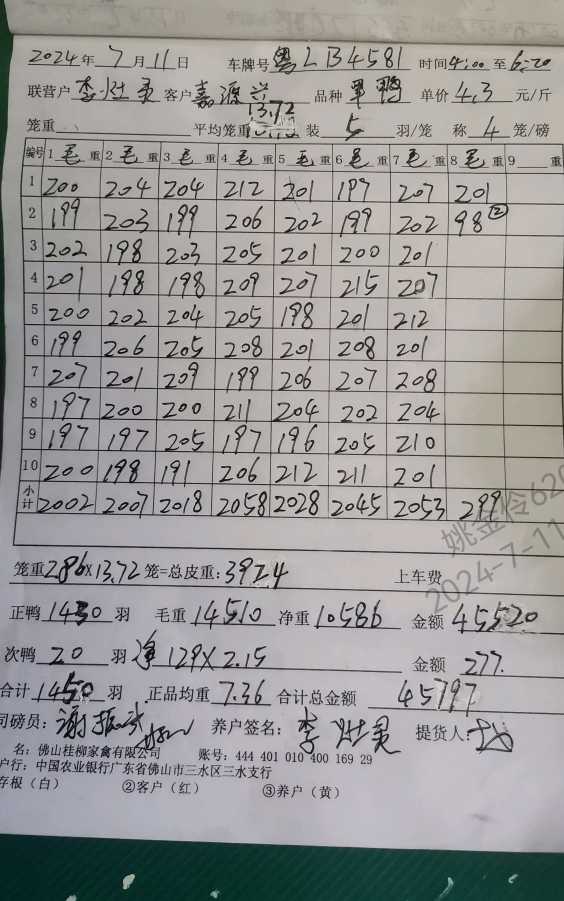 2024年 7月 11日 车牌号 粤LB4581 时间 4:00 至 6:20
联营户 李灶灵 客户 嘉源兴 品种 单价 4.3 元/斤
笼重 平均笼重 13.72 装 5 羽/笼 称 4 笼/磅
编号 1 毛 重 2 毛 重 3 毛 重 4 毛 重 5 毛 重 6 毛 重 7 毛 重 8 毛 重 9 重
1 200 204 204 212 201 197 207 201
2 199 203 199 206 202 199 202 98 ②
3 202 198 203 205 201 200 201
4 201 198 198 209 207 215 207
5 200 202 204 205 198 201 212
6 199 206 205 208 201 208 201
7 207 201 209 199 206 207 208
8 197 200 200 211 204 202 204
9 197 197 205 197 196 205 210
10 200 198 191 206 212 211 201
小计 2002 2007 2018 2058 2028 2045 2053 299
笼重 286×13.72 笼=总皮重: 3924 上车费
正鸭 1430 羽 毛重 14510 净重 10586 金额 45520
次鸭 20 羽 净 129×2.15 金额 277.
合计 1450 羽 正品均重 7.36 合计总金额 45797
司磅员: 养户签名: 李灶灵 提货人:
名: 佛山桂柳家禽有限公司 账号: 444 401 010 400 169 29
户行: 中国农业银行广东省佛山市三水区三水支行
存根（白） ②客户（红） ③养户（黄）
姚金伶620
2024-7-11